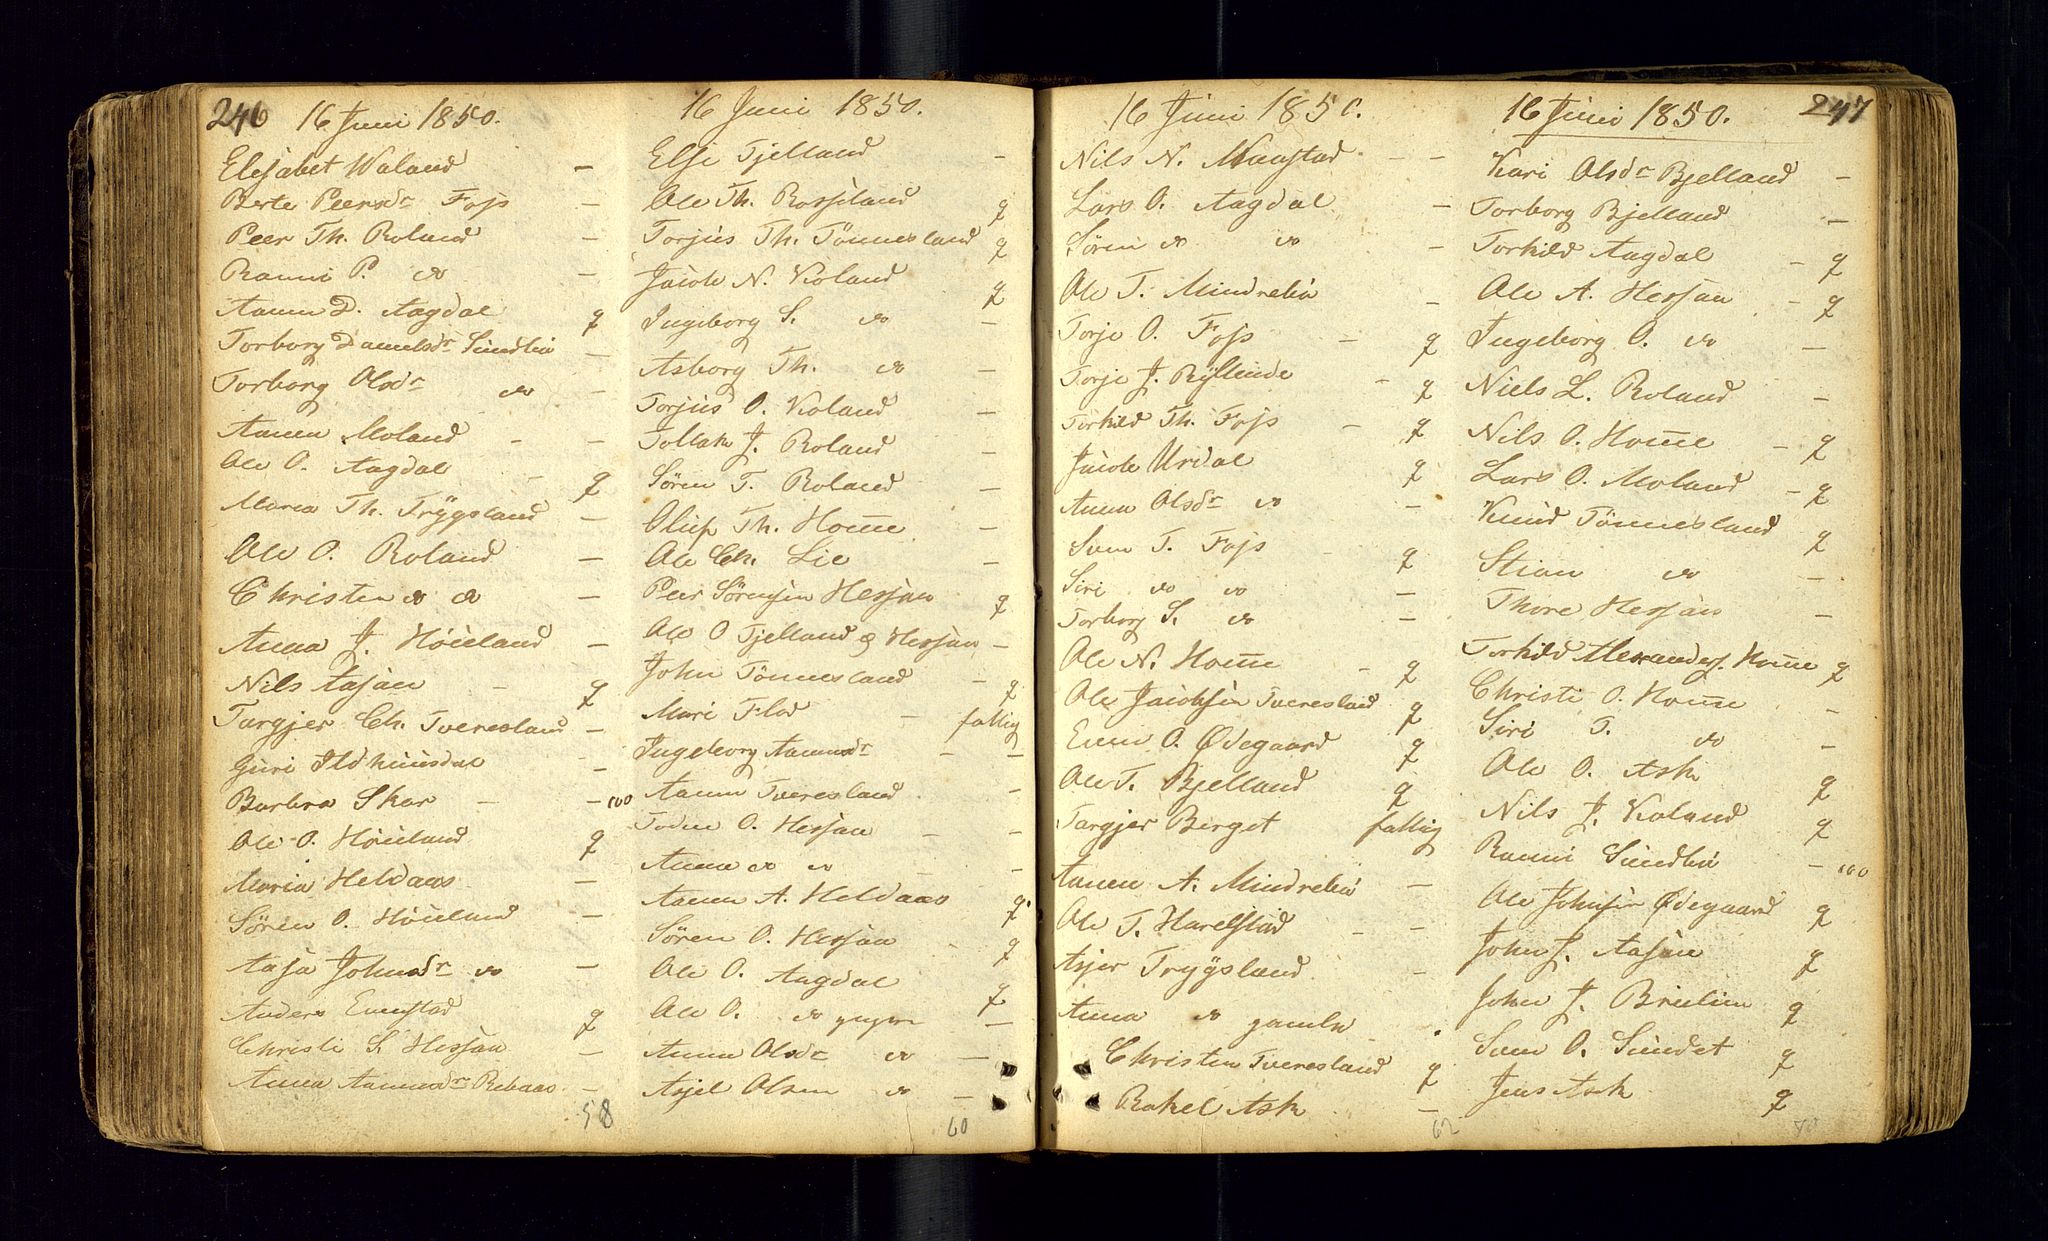 246
16 Juni 1850.
Elisabet Waland –
Berte Peersdr Foss –
Peer Th. Roland –
Ranni P. do –
Aanen D. Aagdal q
Torborg Danielsdr Sundlia –
Torborg Olsdr do –
Aanen Moland – –
Ole O. Aagdal – q
Maren Th. Trygsland –
Ole O. Roland –
Christen do do –
Anna J. Höieland –
Nils Aasan – q
Targjer Ch. Tveresland –
Guri Ildhuusdal –
Barbra Skar – –
Ole O. Höieland q
Maria Heldaas –
Sören O. Höieland –
Aasa Johnsdr do –
Anders Eunstad q
Christi S. Hessaa –
Anna Aanensdr Rebaas –
58
16 Juni 1850.
Else Tjelland –
Ole Th. Rosseland q
Torjus Th. Tönnesland q
Jacob N. Koland q
Ingeborg S. do –
Asborg Th. do –
Torjus O. Koland –
Tollak J. Roland –
Sören T. Roland –
Oluf Th. Home –
Ole Ch. Lie –
Peer Sörensen Hessaa q
Ole O Tjelland & Hessaa –
John Tönnesland – q
Mari Flod – fattig
Ingeborg Aanensdr – –
Aanen Tveresland –
O. Hessaa – –
Anna do do –
Aanen A. Heldaas q.
Sören O. Hessaa – q
Ole O. Aagdal q
Ole O. do yngre –
Anna Olsdr do –
Asjel Olsen do –
60
16 Juni 1850.
Nils N. Manstad – –
Lars O. Aagdal –
Sören do do –
Ole T. Mindrebö –
Torje O. Foss – q
Torje J. Ryllende – q
Torkild Th. Foss – q
Jacob Urdal q
Anna Olsdr do –
Sven T. Foss – q
Siri do do –
Torborg S. do –
Ole N. Home – q
Ole Jacobsen Tveresland q
Even O. Ødegaard q
Ole T. Bjelland q
Targjer Berget fattig
Aanen A. Mindrebö –
Ole T. Harelstad – –
Asjer Trygsland –
Anna do gamle .
Christen Tveresland q
Rakel Ask –
62
247
16 Juni 1850.
Kari Olsdr Bjelland –
Torborg Bjelland –
Torkild Aagdal – q
Ole A. Hessaa – q
Ingeborg O. do –
Niels L. Roland –
Nils O. Home – q
Lars O. Moland – q
Knud Tönnesland q
Stian do –
Thore Hessaa –
Torkild Alexanders. Home q
Christi O. Home –
Siri T. do –
Ole O. Ask q
Nils J. Koland q
Ranni Sundlia –
Ole Johnsen Ødegaard q
John J. Aasan q
John J. Breilien q
Sven O. Sundet q
Jens Ask q
70